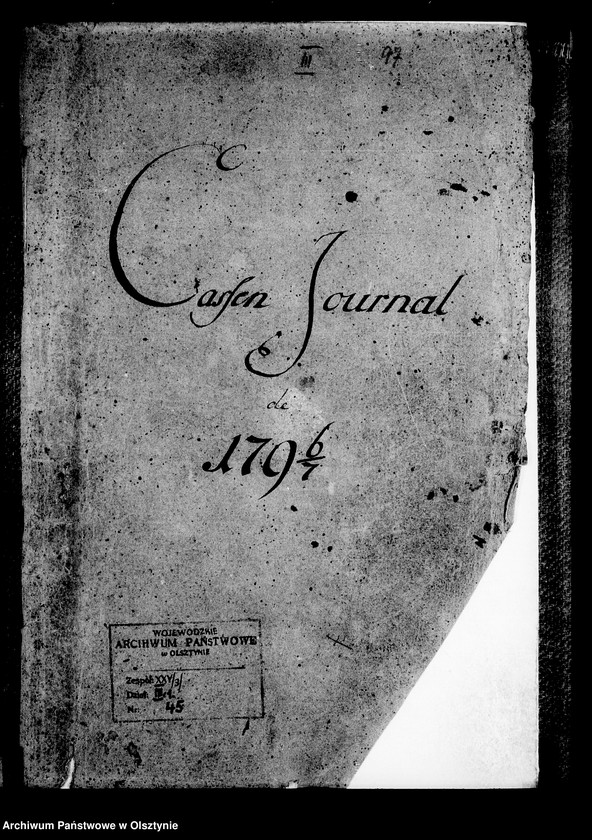 III 97
Cassen Journal
de
1796/7
WOJEWÓDZKIE
ARCHIWUM PAŃSTWOWE
w OLSZTYNIE
Zespół: XXV/3/
Dział:
Nr: 45
Archiwum Państwowe w Olsztynie